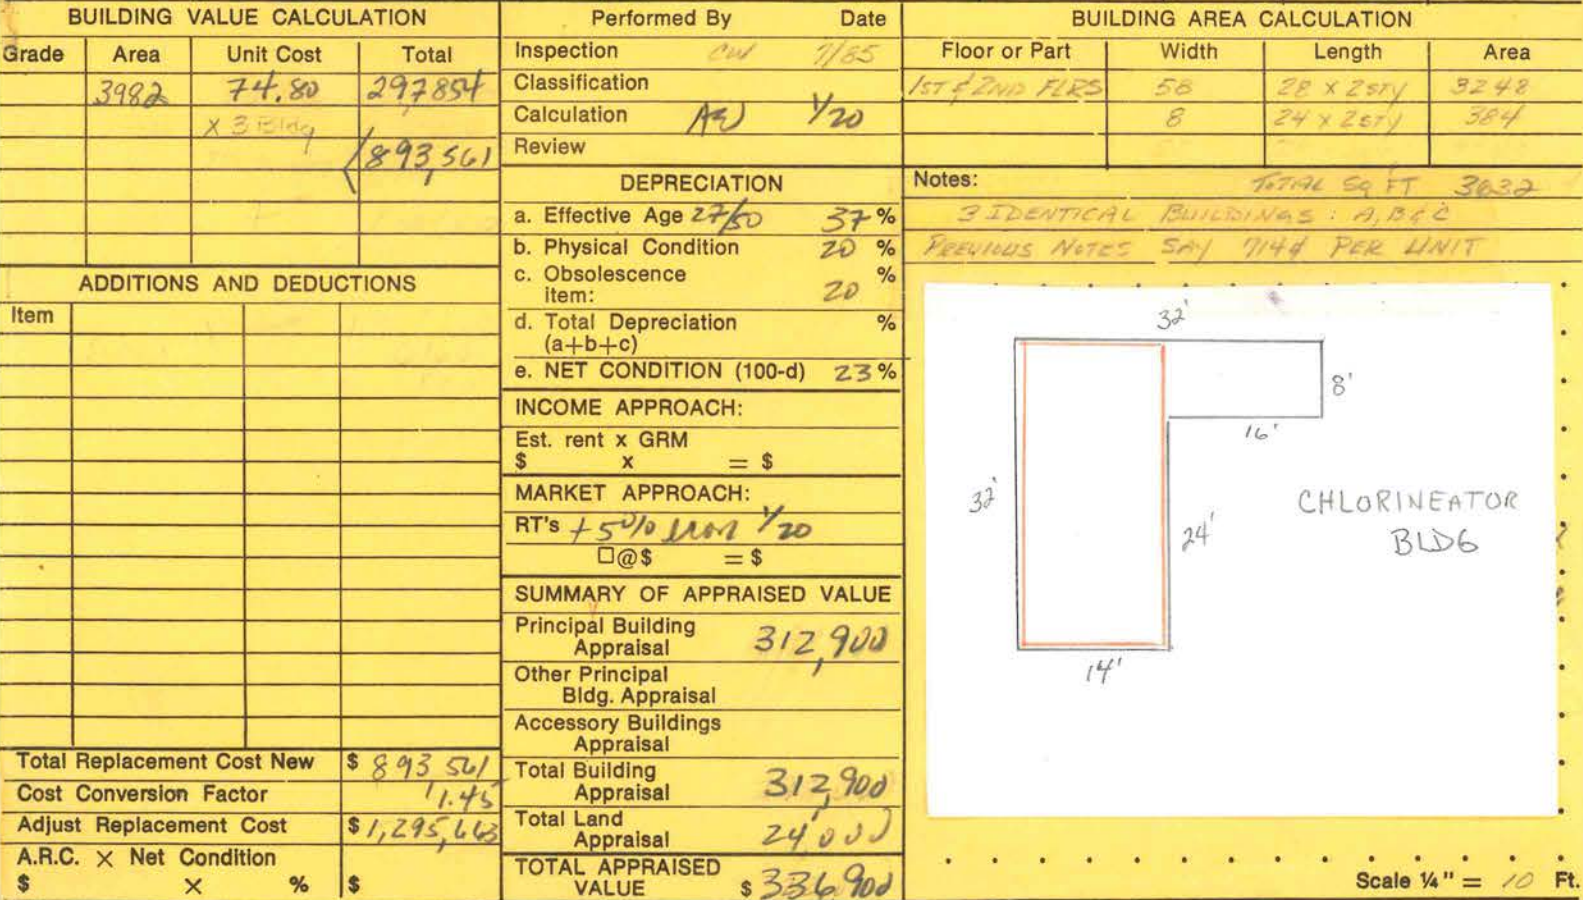 BUILDING VALUE CALCULATION
Grade Area Unit Cost Total
3982 74.80 297854
x 3 Bldg
893,561
ADDITIONS AND DEDUCTIONS
Item
Total Replacement Cost New $ 893 561
Cost Conversion Factor 1.45
Adjust Replacement Cost $ 1,295,663
A.R.C. × Net Condition
$ × % $
Performed By Date
Inspection CW 7/85
Classification
Calculation 1/20
Review
DEPRECIATION
a. Effective Age 27/50 37 %
b. Physical Condition 20 %
c. Obsolescence %
item: 20
d. Total Depreciation %
(a+b+c)
e. NET CONDITION (100-d) 23 %
INCOME APPROACH:
Est. rent x GRM
$ x = $
MARKET APPROACH:
RT's +5% 1/20
□@$ = $
SUMMARY OF APPRAISED VALUE
Principal Building
Appraisal 312,900
Other Principal
Bldg. Appraisal
Accessory Buildings
Appraisal
Total Building
Appraisal 312,900
Total Land
Appraisal 24,000
TOTAL APPRAISED
VALUE $ 336,900
BUILDING AREA CALCULATION
Floor or Part Width Length Area
1ST & 2ND FLRS 58 28 x 2STY 3248
8 24 x 2STY 384
Notes: TOTAL SQ FT 3632
3 IDENTICAL BUILDINGS: A, B & C
PREVIOUS NOTES SAY 714¢ PER UNIT
32'
8'
16'
32'
24'
CHLORINEATOR
BLDG
14'
Scale ¼" = 10 Ft.